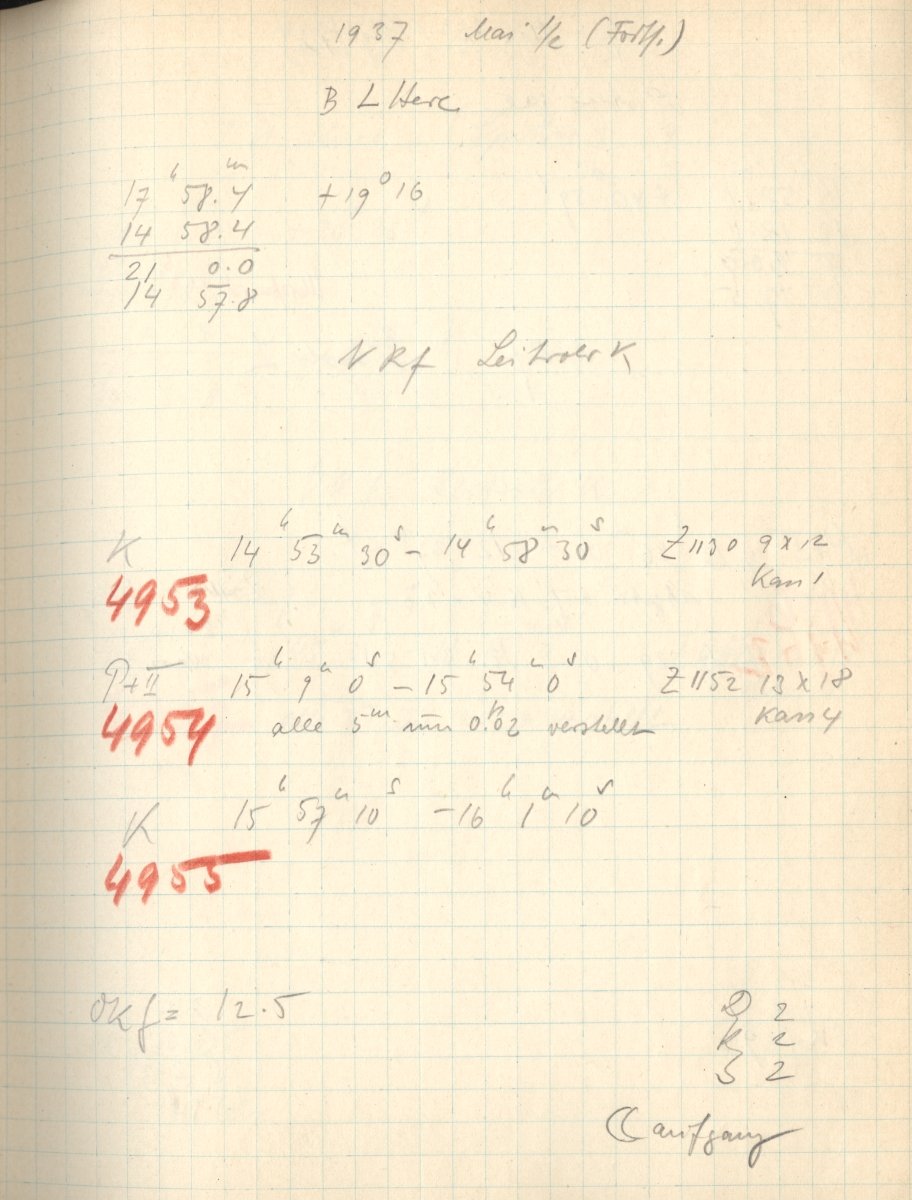 1937 Mai 1/2 (Forts.)
BL Herc
17ʰ 58.4ᵐ +19° 16
14 58.4
21 0.0
14 57.8
Leitrohr K
K 14ʰ 53ᵐ 30ˢ – 14ʰ 58ᵐ 30ˢ Z1130 9x12
4953 Kass 1
P+II 15ʰ 9ᵐ 0ˢ – 15ʰ 54ᵐ 0ˢ Z1152 13x18
4954 alle 5ᵐ um 0.02 verstellt Kass 4
K 15ʰ 57ᵐ 10ˢ – 16ʰ 1ᵐ 10ˢ
4955
= 12.5
D 2
R 2
S 2
☾ aufgang